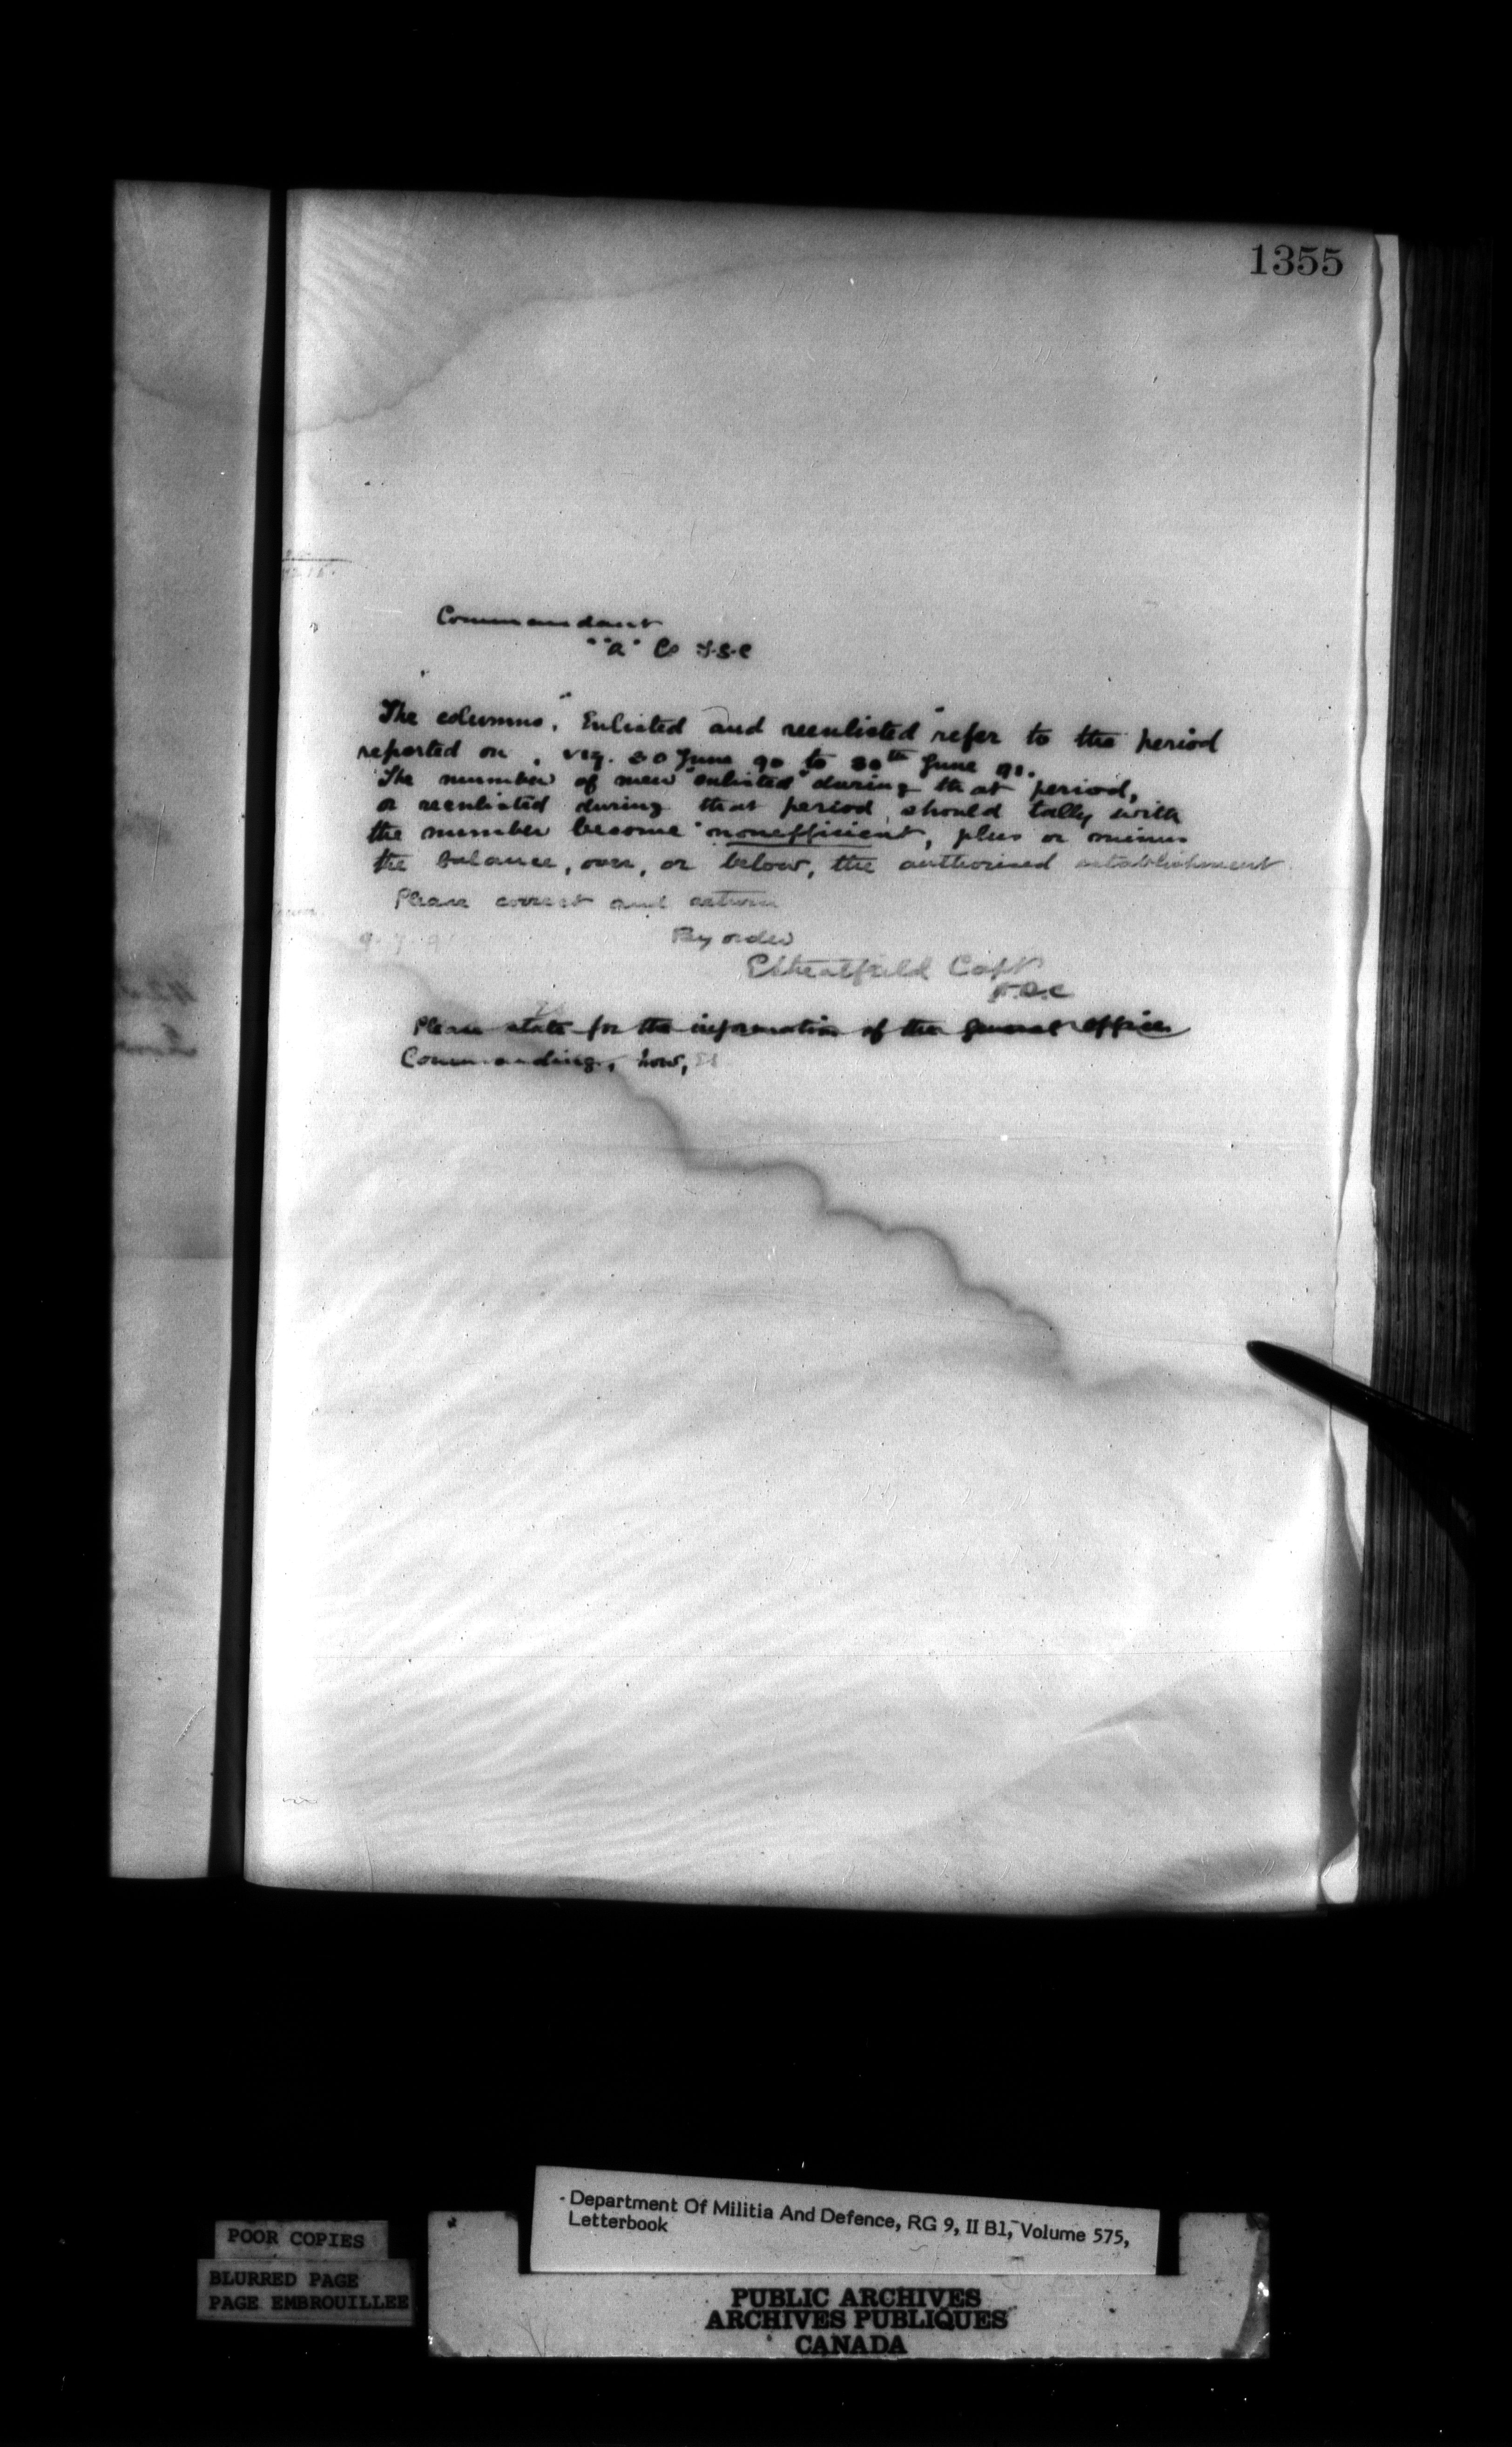 1355
Commandant
"A" Co I.S.C
The columns, "Enlisted and reenlisted" refer to the period
reported on, viz. 30 June 90 to 30th June 91.
The number of men "enlisted" during that period,
or reenlisted during that period, should tally with
the number become "nonefficient, plus or minus
the balance, over, or below, the authorised establishment
Please correct and return
9.7.91
By order
Streatfeild Capt
A.D.C
Please state for the information of the General Officer
Commanding, how,
Department Of Militia And Defence, RG 9, II B1, Volume 575,
Letterbook
POOR COPIES
BLURRED PAGE
PAGE EMBROUILLEE
PUBLIC ARCHIVES
ARCHIVES PUBLIQUES
CANADA